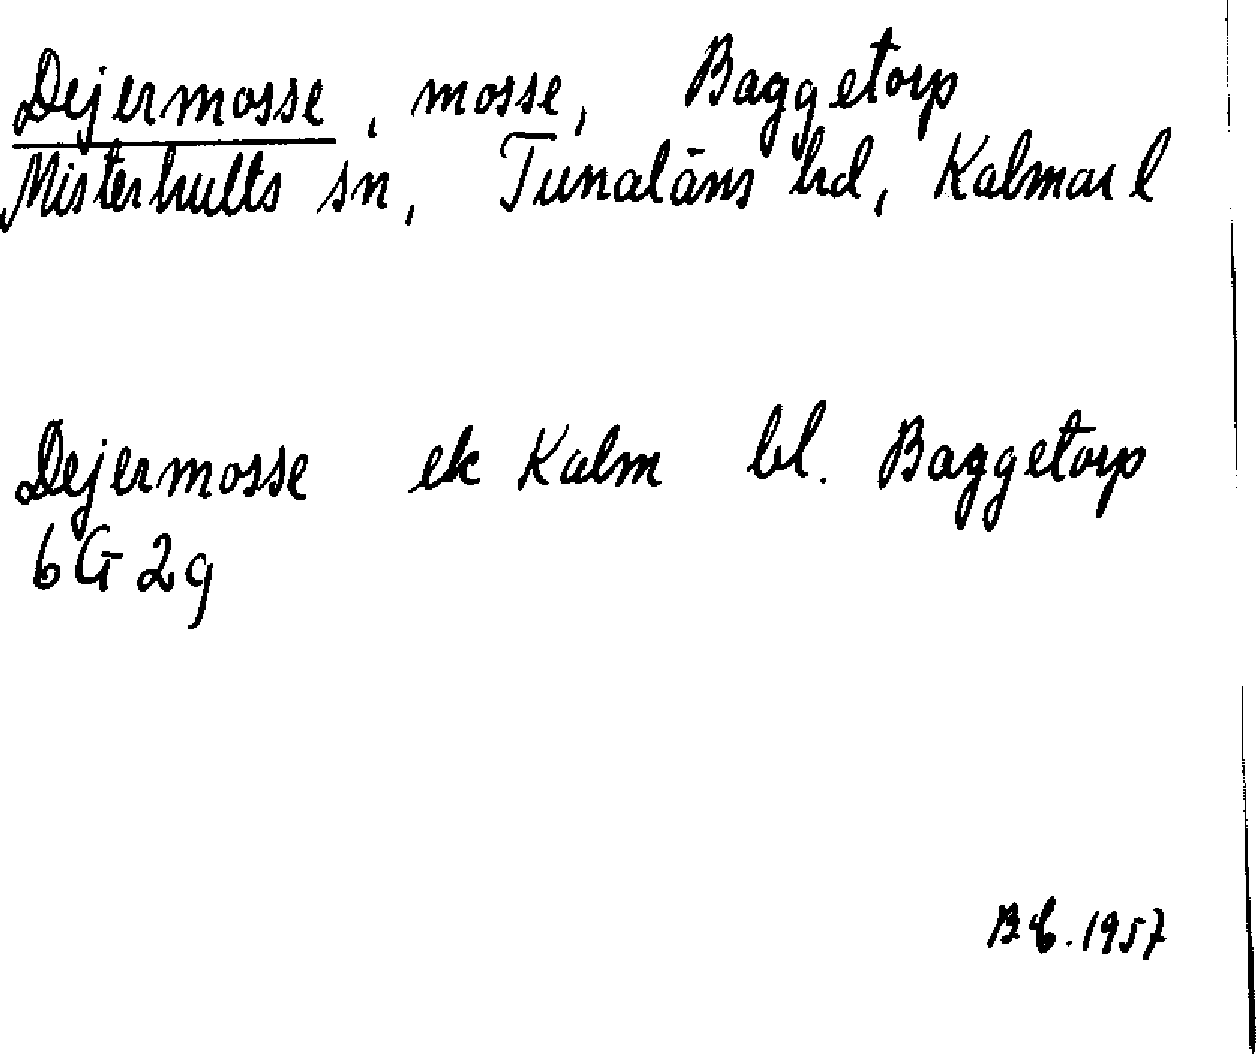 Dejermosse, mosse, Baggetorp
Misterhults sn, Tunaläns hd, Kalmar l
Dejermosse ek Kalm bl. Baggetorp
6G 2g
1957